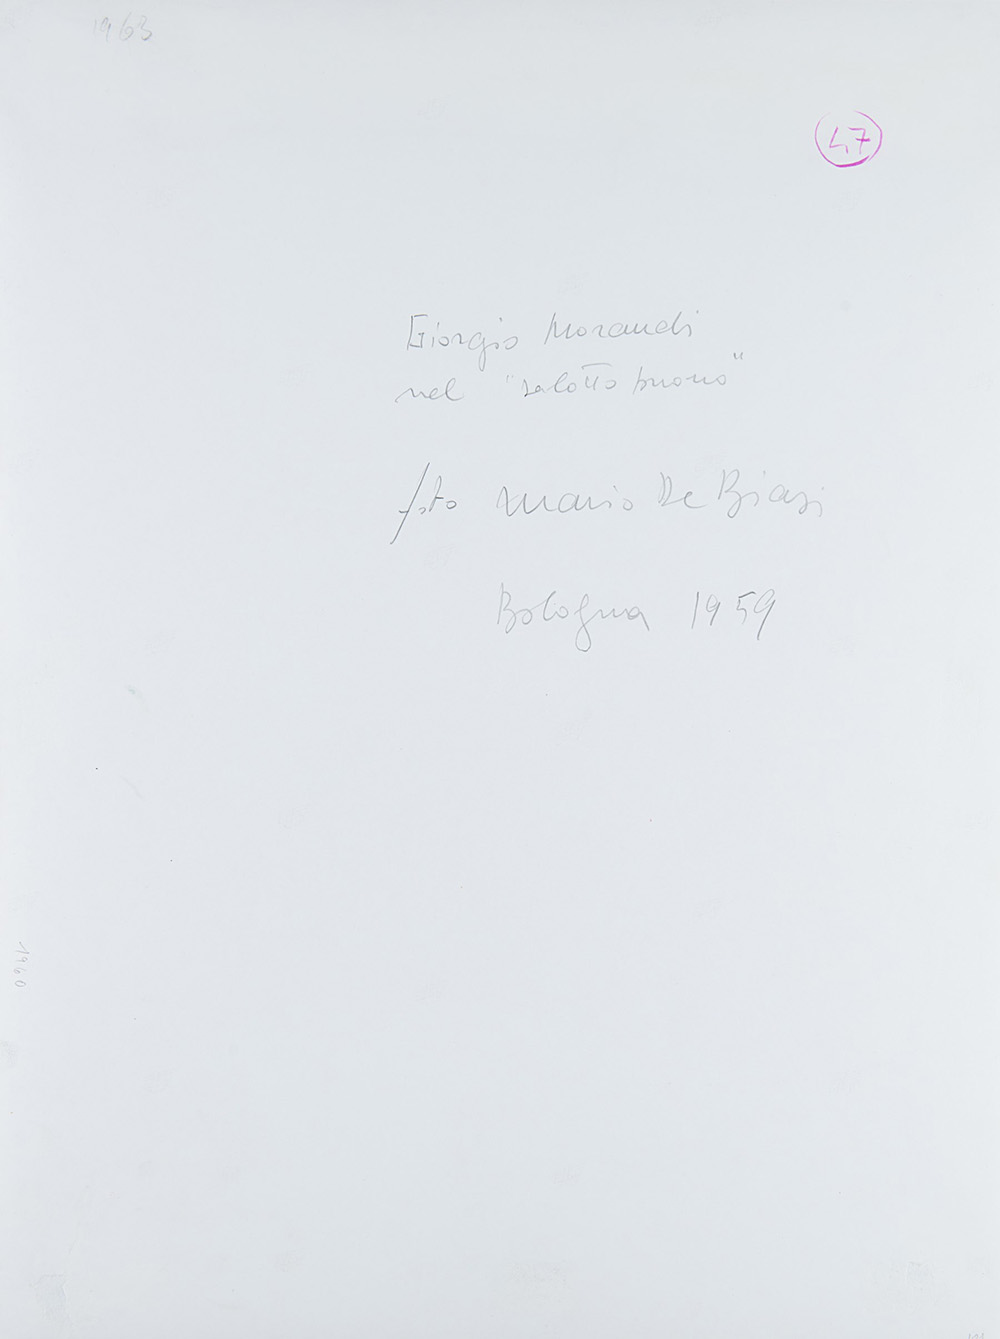 1963
47
Giorgio Morandi
nel "salotto buono"
foto Mario De Biasi
Bologna 1959
1960